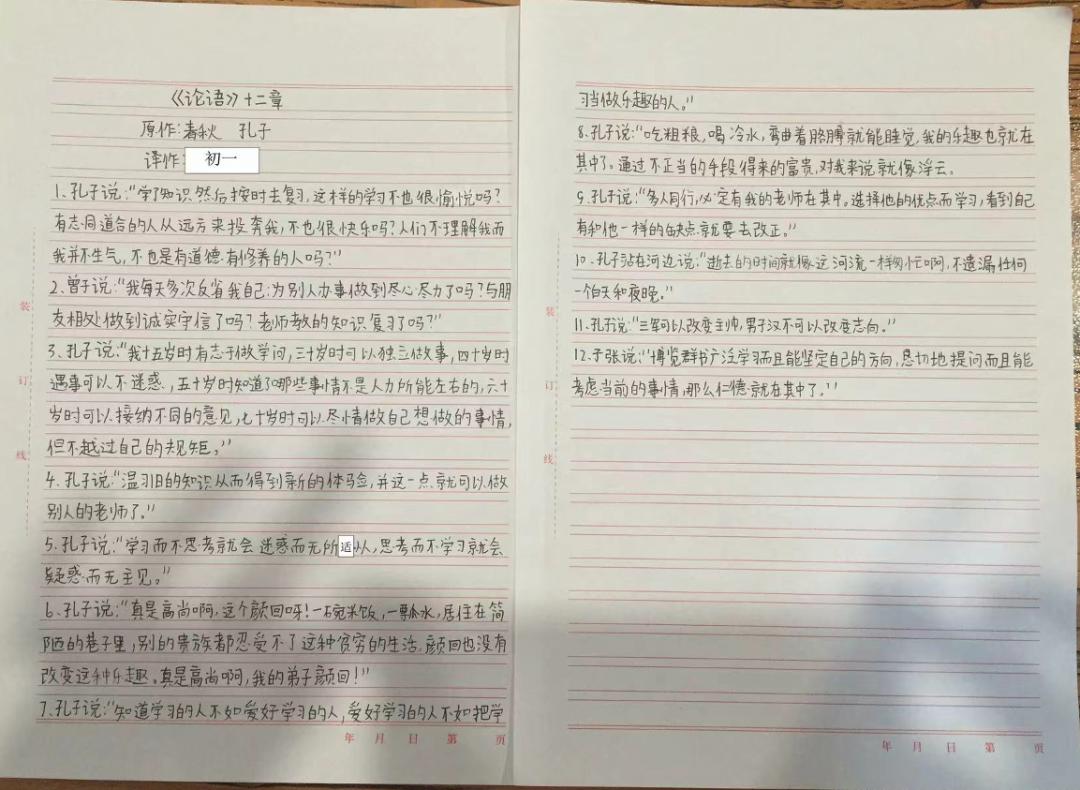 《论语》十二章
原作:春秋 孔子
译作:初一
1、孔子说:“学了知识然后按时去复习,这样的学习不也很愉悦吗?
有志同道合的人从远方来投奔我,不也很快乐吗?人们不理解我而
我并不生气,不也是有道德有修养的人吗?”
2、曾子说:“我每天多次反省我自己:为别人办事做到尽心尽力了吗?与朋
友相处做到诚实守信了吗?老师教的知识复习了吗?”
3、孔子说:“我十五岁时有志于做学问,三十岁时可以独立做事,四十岁时
遇事可以不迷惑,五十岁时知道了哪些事情不是人力所能左右的,六十
岁时可以接纳不同的意见,七十岁时可以尽情做自己想做的事情,
但不越过自己的规矩。”
4、孔子说:“温习旧的知识从而得到新的体验,并这一点就可以做
别人的老师了。”
5、孔子说:“学习而不思考就会迷惑而无所适从,思考而不学习就会
疑惑而无主见。”
6、孔子说:“真是高尚啊,这个颜回呀!一碗米饭,一瓢水,居住在简
陋的巷子里,别的贵族都忍受不了这种贫穷的生活,颜回也没有
改变这种乐趣。真是高尚啊,我的弟子颜回!”
7、孔子说:“知道学习的人不如爱好学习的人,爱好学习的人不如把学
年 月 日 第 页
习当做乐趣的人。”
8、孔子说:“吃粗粮,喝冷水,弯曲着胳膊就能睡觉,我的乐趣也就在
其中了。通过不正当的手段得来的富贵,对我来说就像浮云。
9、孔子说:“多人同行,必定有我的老师在其中。选择他的优点而学习,看到自己
有和他一样的缺点就要去改正。”
10、孔子站在河边说:“逝去的时间就像这河流一样匆忙啊,不遗漏任何
一个白天和夜晚。”
11、孔子说:“三军可以改变主帅,男子汉不可以改变志向。”
12、子张说:“博览群书广泛学习而且能坚定自己的方向,恳切地提问而且能
考虑当前的事情,那么仁德就在其中了。”
年 月 日 第 页
装
订
线
装
订
线